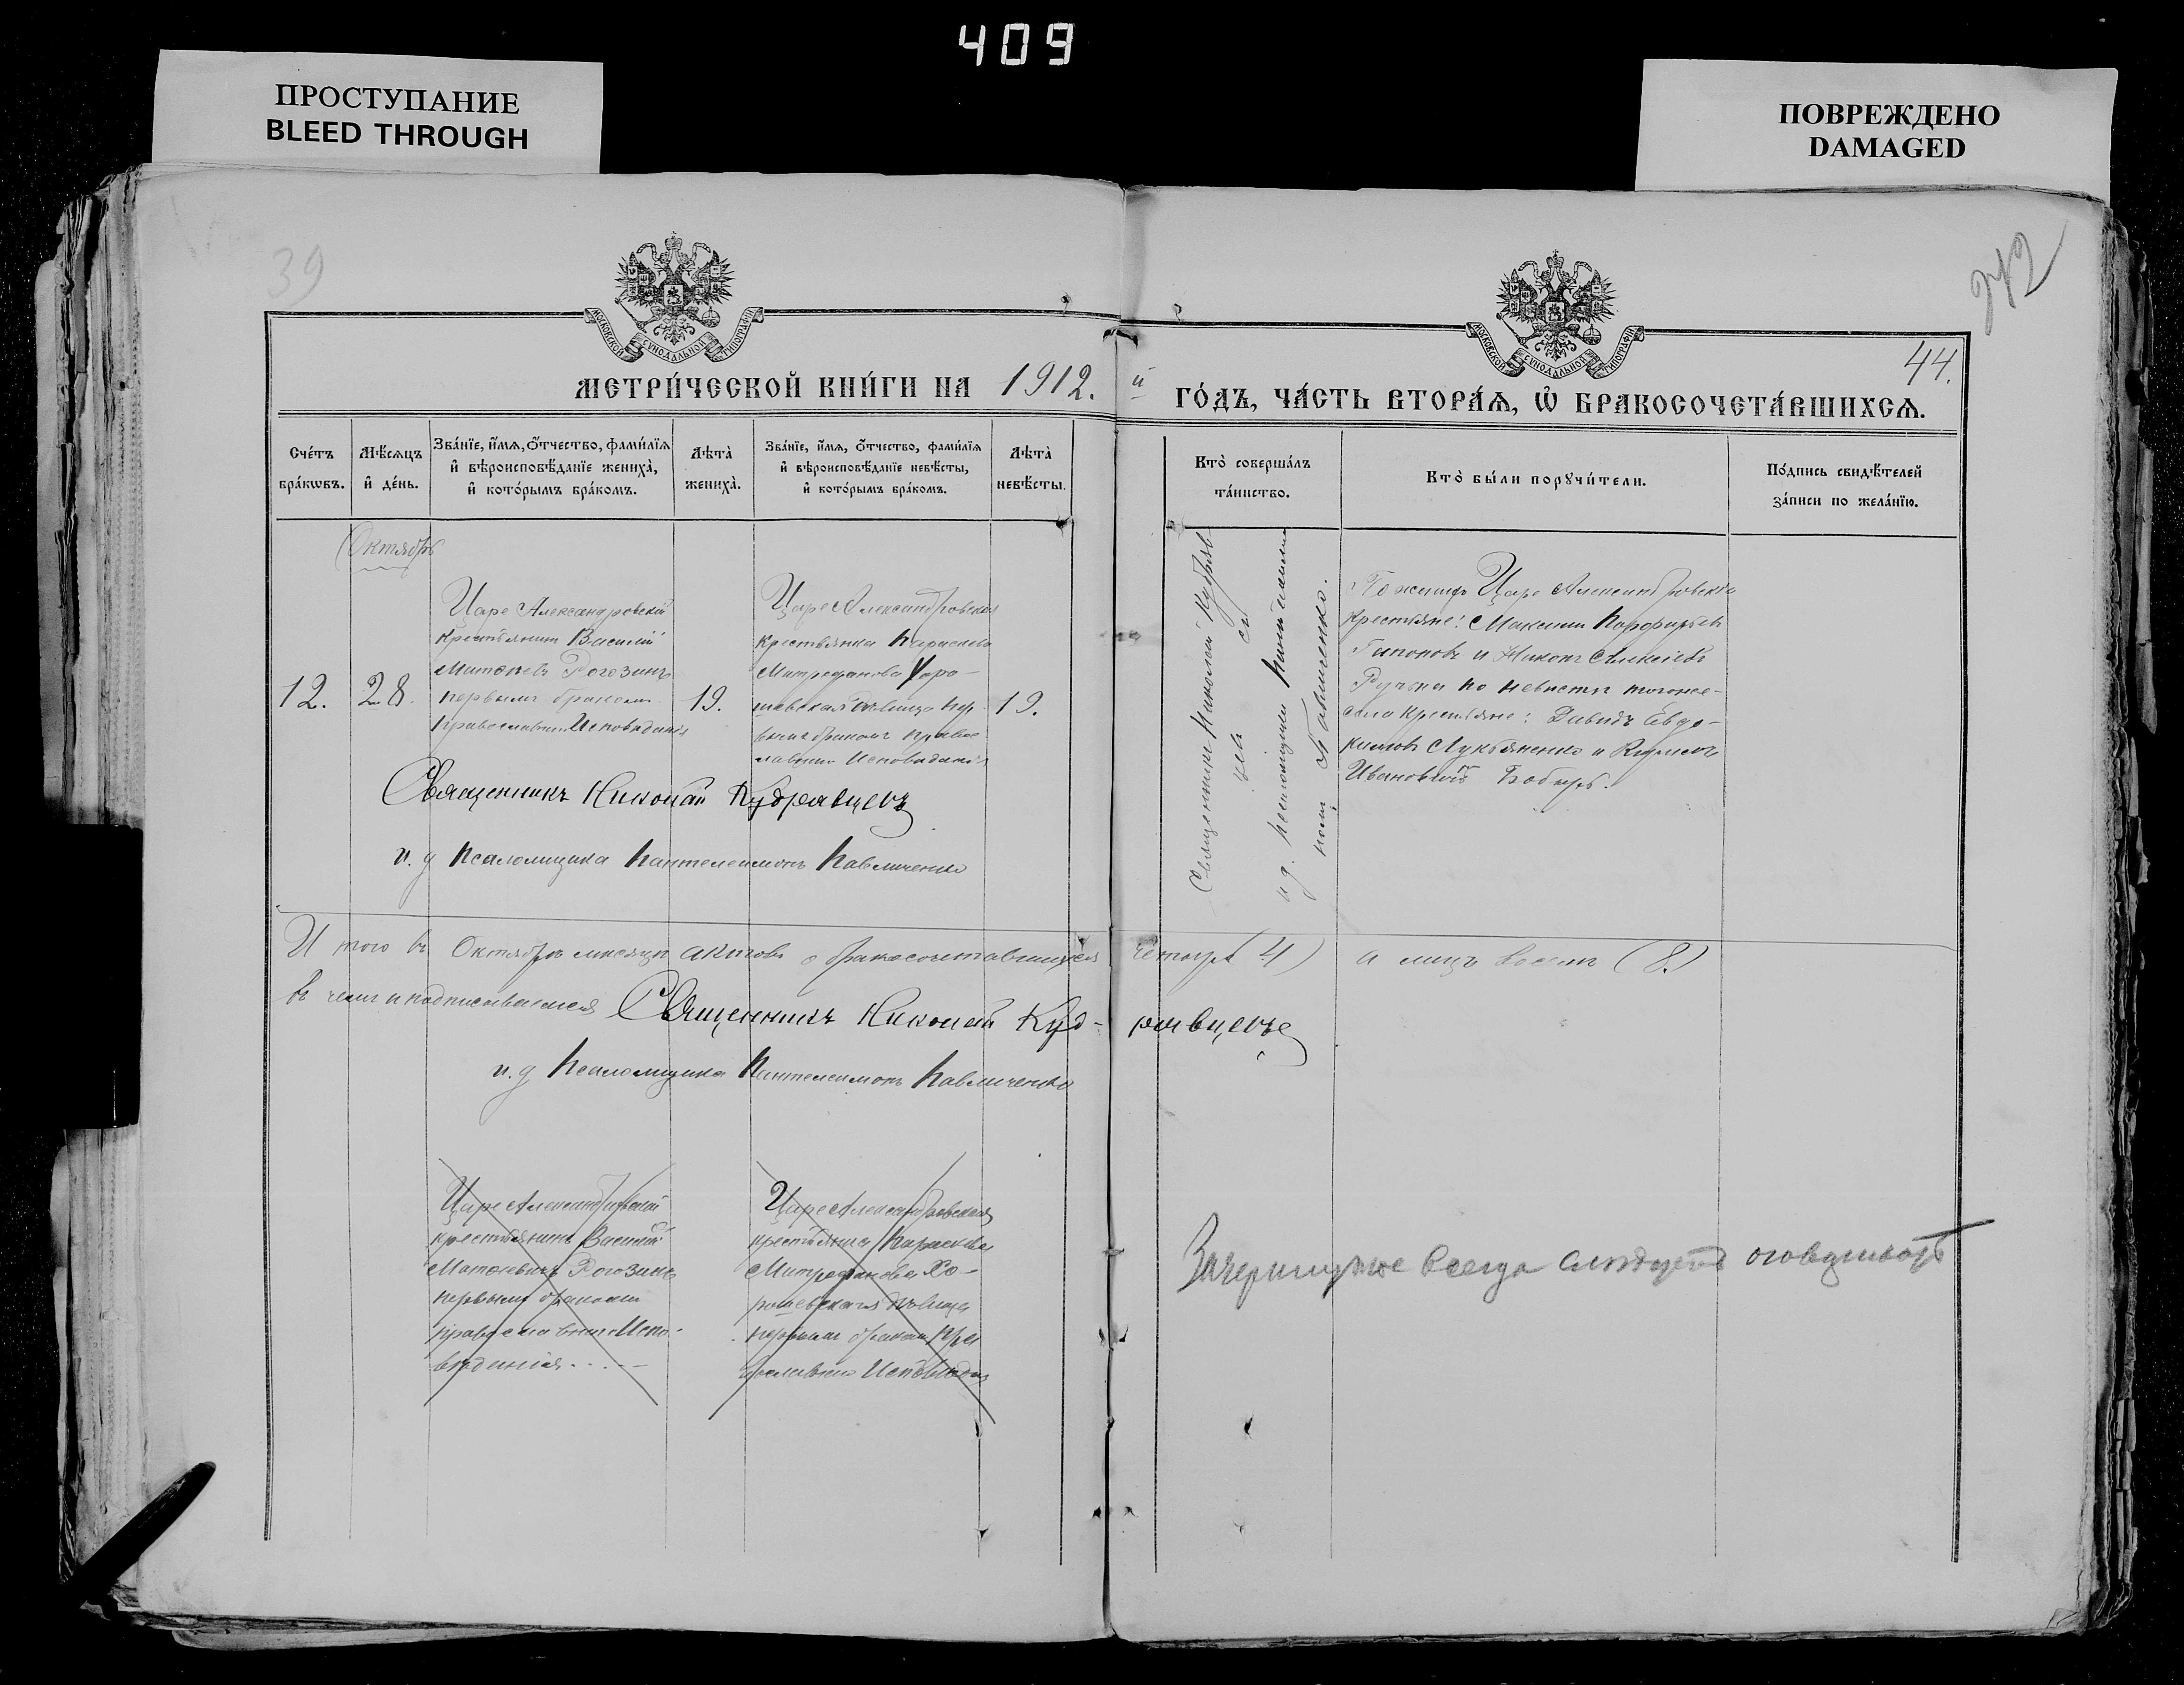 409
ПРОСТУПАНИЕ
BLEED THROUGH
ПОВРЕЖДЕНО
DAMAGED
39
242
44.
МОСКОВСКОЙ СѴНОДАЛЬНОЙ ТИПОГРАФІИ
МОСКОВСКОЙ СѴНОДАЛЬНОЙ ТИПОГРАФІИ
МЕТРИ́ЧЕСКОЙ КНИ́ГИ НА 1912. й ГО́ДЪ, ЧА́СТЬ ВТОРА́Ѧ, Ѡ҆ БРАКОСОЧЕТА́ВШИХСѦ.
Сче́тъ
бра́кѡвъ.
Мѣ́сѧцъ
и҆ де́нь.
Зва́нїе, и҆́мѧ, ѻ҆́тчество, фами́лїѧ
и҆ вѣроисповѣ́данїе жениха̀,
и҆ кото́рымъ бра́комъ.
Лѣта̀
жениха̀.
Зва́нїе, и҆́мѧ, ѻ҆́тчество, фами́лїѧ
и҆ вѣроисповѣ́данїе невѣ́сты,
и҆ кото́рымъ бра́комъ.
Лѣта̀
невѣ́сты.
Кто̀ соверша́лъ
та́инство.
Кто̀ бы́ли порꙋчи́тели.
По́дпись свидѣ́телей
за́писи по жела́нїю.
Октябрь
12.
28.
Царе Александровскій
крестьянинъ Василій
Матѳеевъ Рогозинъ
первымъ бракомъ
православнаго Исповѣданія
19.
Царе Александровская
крестьянка Параскева
Митрофанова Хоро-
шевская дѣвица пер-
вымъ бракомъ право
славнаго Исповѣданія
19.
Священникъ Николай Кудряв
цевъ
и д. псаломщика Пантелеимо
нъ Павличенко.
По женихѣ Царе Александровскіе
крестьяне: Максимъ Порфирьевъ
Гапоновъ и Никонъ Алексѣевъ
Ручка по невѣстѣ тогоже-
села крестьяне: Давидъ Евдо-
кимовъ Лукьяненко и Кириллъ
Ивановъ Бобырь.
Священникъ Николай Кудрявцевъ
и. д псаломщика Пантелеимонъ Павличенко
И того въ Октябрѣ мѣсяцѣ актовъ о бракосочетавшихся четыре (4) а лицъ восемь (8.)
въ чемъ и подписываемся Священникъ Николай Куд- рявцевъ
и. д Псаломщика Пантелеимонъ Павличенко
Царе Александровскій
крестьянинъ Василій
Матѳеевичъ Рогозинъ
первымъ бракомъ
православнаго Испо-
вѣданія
Царе Александровская
крестьянка Параскева
Митрофанова Хо-
рошевская дѣвица
первымъ бракомъ пра
вославнаго Исповѣдан
Зачеркнутое всегда слѣдуетъ оговаривать